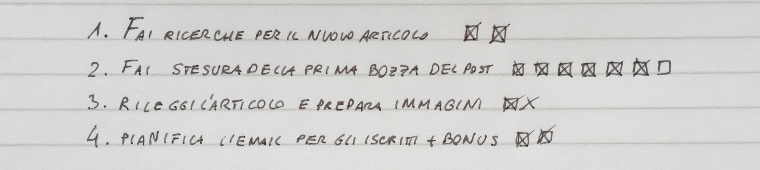 1. FAI RICERCHE PER IL NUOVO ARTICOLO ☒ ☒
2. FAI STESURA DELLA PRIMA BOZZA DEL POST ☒ ☒ ☒ ☒ ☒ ☒ ☐
3. RILEGGI L'ARTICOLO E PREPARA IMMAGINI ☒ X
4. PIANIFICA L'EMAIL PER GLI ISCRITTI + BONUS ☒ ☒